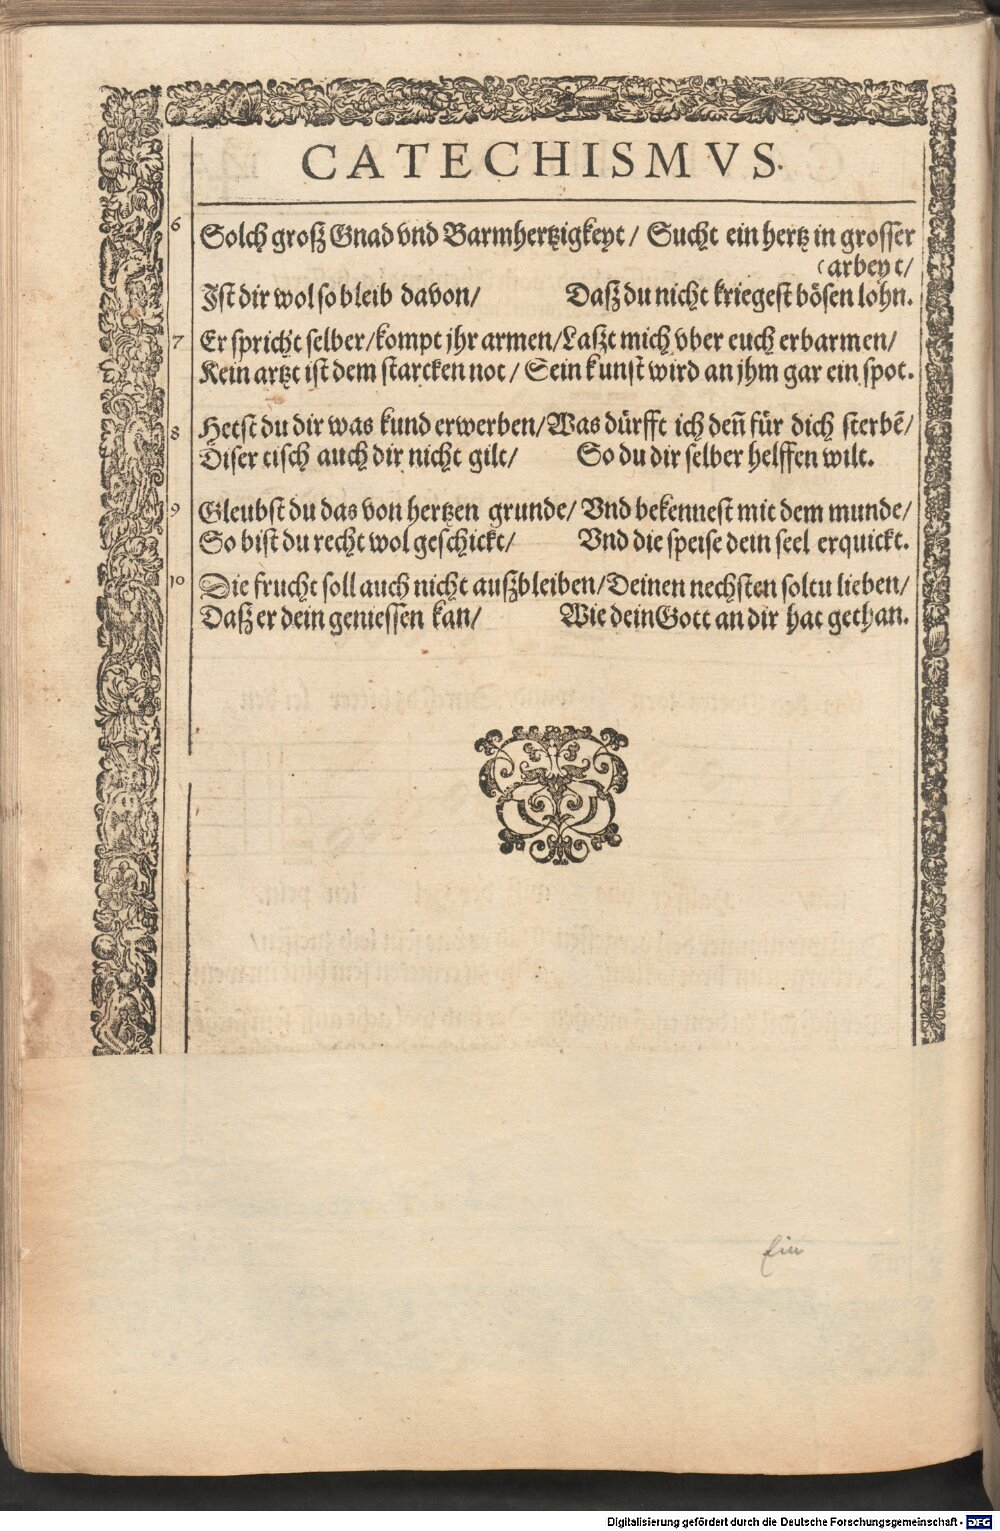 CATECHISMVS.
6 Solch groß Gnad vnd Barmhertzigkeyt/ Sucht ein hertz in grosser
(arbeyt/
Ist dir wol so bleib davon/ Daß du nicht kriegest bösen lohn.
7 Er spricht selber/kompt jhr armen/Laßt mich vber euch erbarmen/
Kein artzt ist dem starcken not/ Sein kunst wird an jhm gar ein spot.
8 Hetst du dir was kund erwerben/Was dürfft ich deñ für dich sterbē/
Diser tisch auch dir nicht gilt/ So du dir selber helffen wilt.
9 Gleubst du das von hertzen grunde/ Vnd bekennest mit dem munde/
So bist du recht wol geschickt/ Vnd die speise dein seel erquickt.
10 Die frucht soll auch nicht außbleiben/Deinen nechsten soltu lieben/
Daß er dein geniessen kan/ Wie dein Gott an dir hat gethan.
Ein
Digitalisierung gefördert durch die Deutsche Forschungsgemeinschaft - DFG